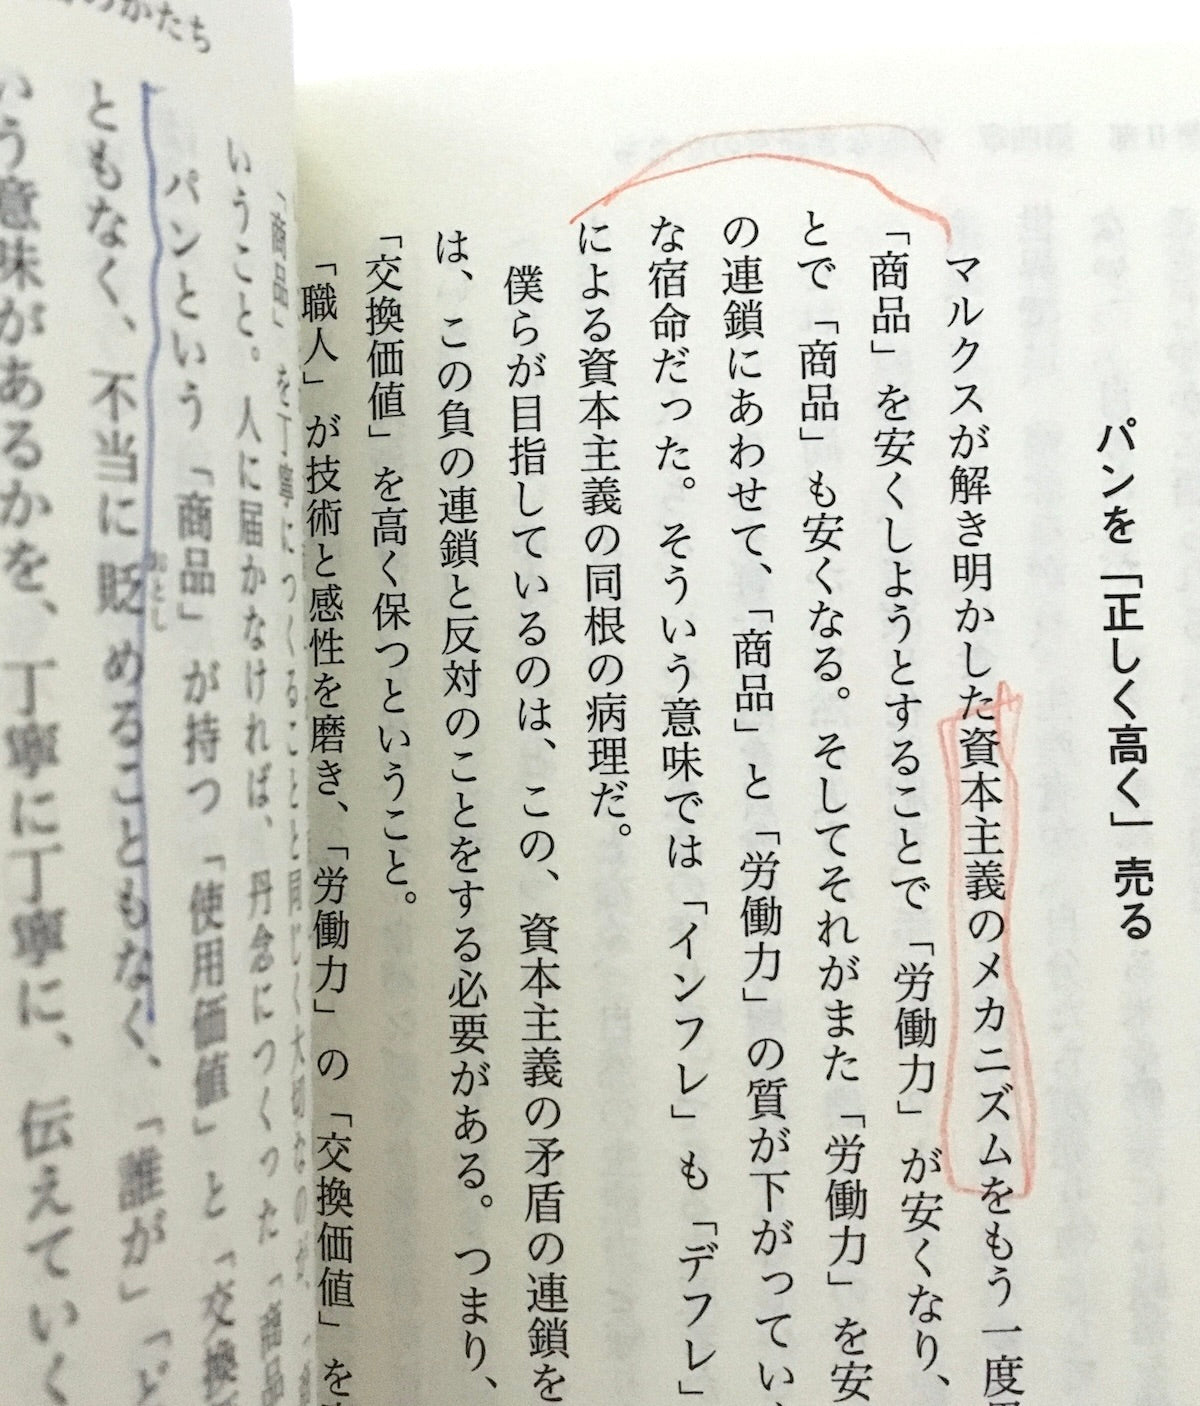 パンを「正しく高く」売る
マルクスが解き明かした資本主義のメカニズムをもう一度
「商品」を安くしようとすることで「労働力」が安くなり、
とで「商品」も安くなる。そしてそれがまた「労働力」を安
の連鎖にあわせて、「商品」と「労働力」の質が下がってい
な宿命だった。そういう意味では「インフレ」も「デフレ」
による資本主義の同根の病理だ。
僕らが目指しているのは、この、資本主義の矛盾の連鎖を
は、この負の連鎖と反対のことをする必要がある。つまり、
「交換価値」を高く保つということ。
「職人」が技術と感性を磨き、「労働力」の「交換価値」を
のかたち
「商品」を丁寧につくることと同じく大切なのが、
いうこと。人に届かなければ、丹念につくった「商品
パンという「商品」が持つ「使用価値」と「交換
ともなく、不当に貶めることもなく、「誰が」「ど
おとし
いう意味があるかを、丁寧に丁寧に、伝えていく